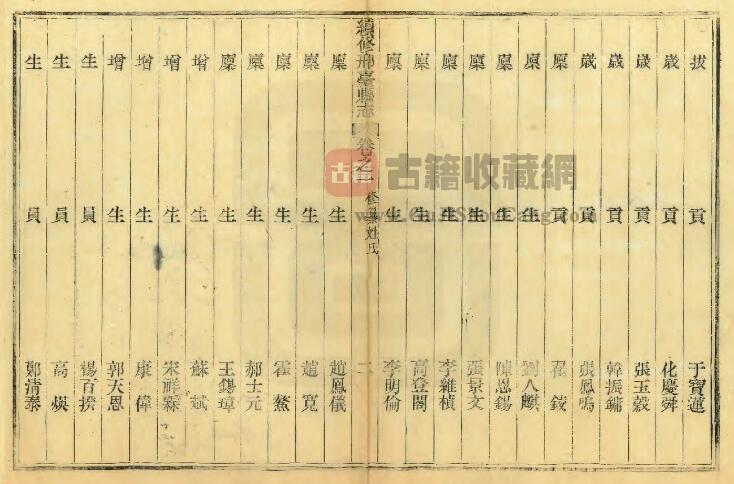 拔貢于寶蓮
歲貢化慶舜
歲貢張玉穀
歲貢韓振鏞
歲貢張鳳鳴
廩貢翟錂
廩生劉八麒
廩生陳恩錫
廩生張景文
廩生李維楨
廩生高登閣
廩生李明倫
續修邢臺縣志 卷之一 修纂姓氏 二
廩生趙鳳儀
廩生趙寬
廩生霍鰲
廩生郝士元
廩生王錫璋
增生蘇斌
增生宋祥霖
增生康偉
增生郭天恩
生員楊百揆
生員高煐
生員鄭清泰
古籍
古籍收藏網
www.GuJiShouCang.com